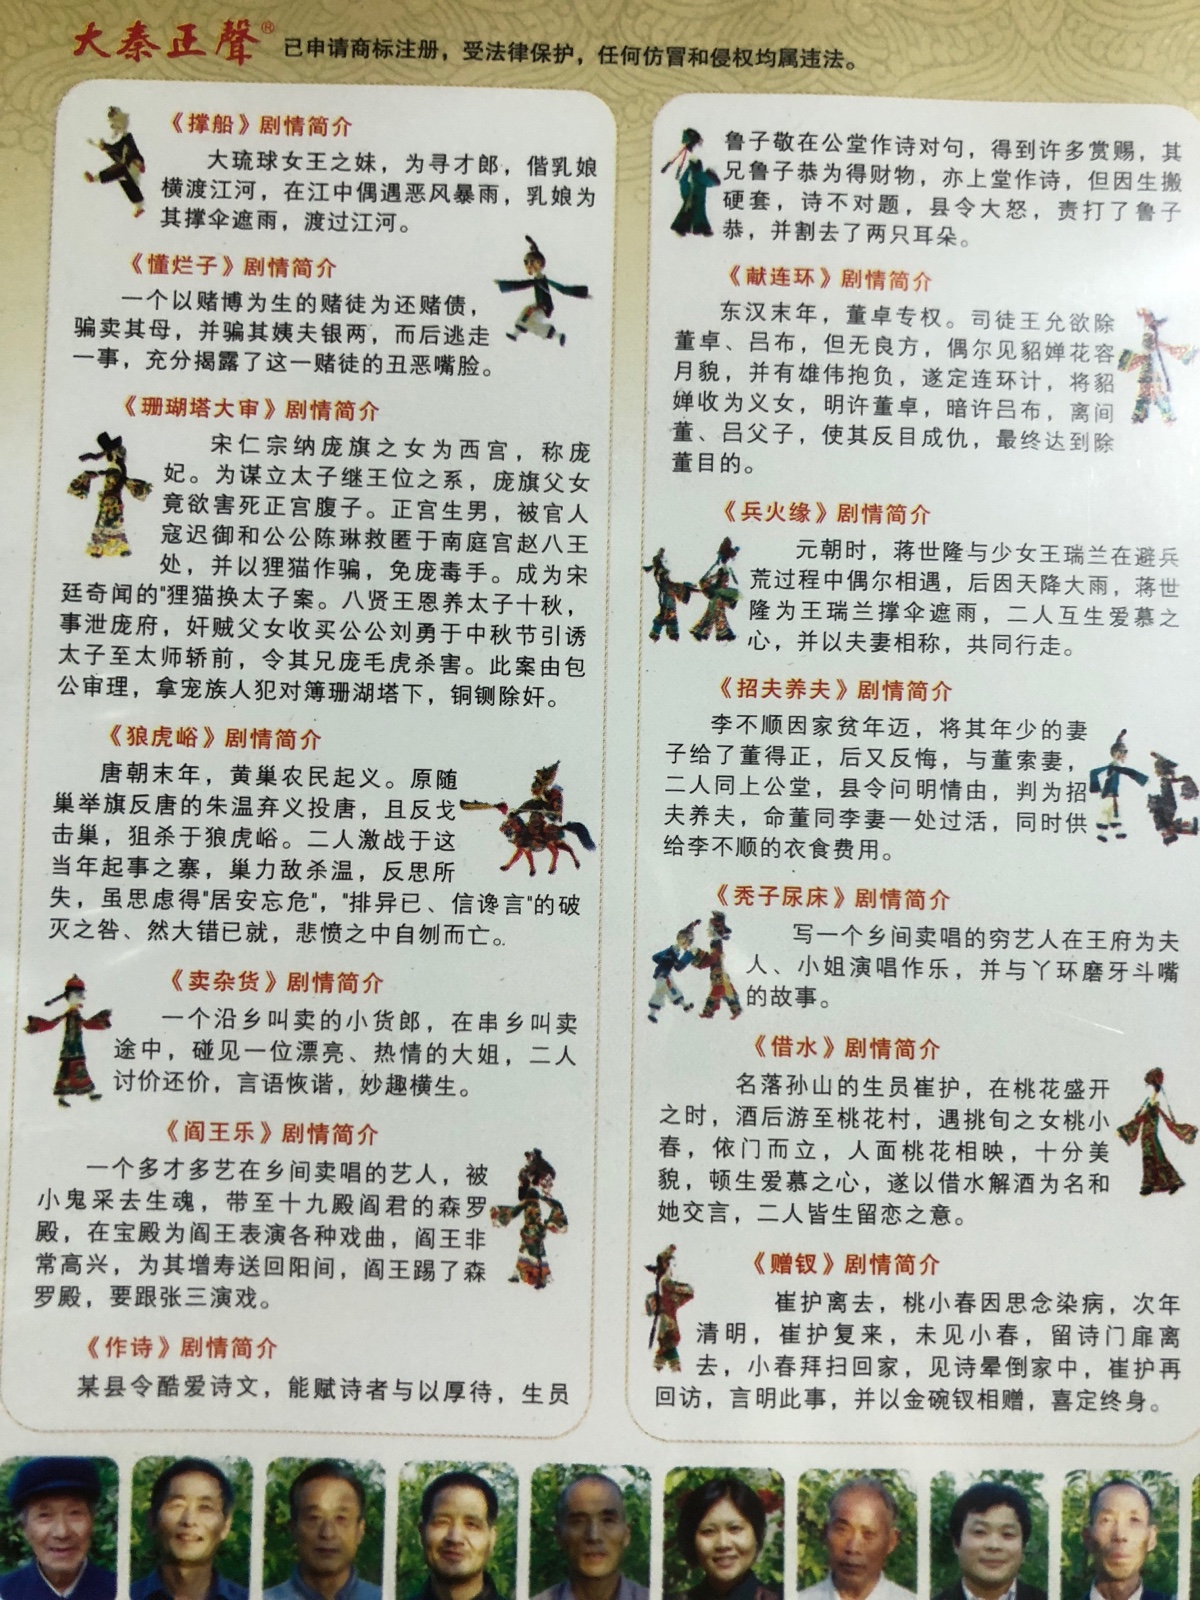 大秦正聲®
已申请商标注册，受法律保护，任何仿冒和侵权均属违法。
《撑船》剧情简介
大琉球女王之妹，为寻才郎，偕乳娘
横渡江河，在江中偶遇恶风暴雨，乳娘为
其撑伞遮雨，渡过江河。
《懂烂子》剧情简介
一个以赌博为生的赌徒为还赌债，
骗卖其母，并骗其姨夫银两，而后逃走
一事，充分揭露了这一赌徒的丑恶嘴脸。
《珊瑚塔大审》剧情简介
宋仁宗纳庞旗之女为西宫，称庞
妃。为谋立太子继王位之系，庞旗父女
竟欲害死正宫腹子。正宫生男，被官人
寇迟御和公公陈琳救匿于南庭宫赵八王
处，并以狸猫作骗，免庞毒手。成为宋
廷奇闻的"狸猫换太子案。八贤王恩养太子十秋，
事泄庞府，奸贼父女收买公公刘勇于中秋节引诱
太子至太师轿前，令其兄庞毛虎杀害。此案由包
公审理，拿宠族人犯对簿珊湖塔下，铜铡除奸。
《狼虎峪》剧情简介
唐朝末年，黄巢农民起义。原随
巢举旗反唐的朱温弃义投唐，且反戈
击巢，狙杀于狼虎峪。二人激战于这
当年起事之寨，巢力敌杀温，反思所
失，虽思虑得"居安忘危"，"排异已、信谗言"的破
灭之咎、然大错已就，悲愤之中自刎而亡。
《卖杂货》剧情简介
一个沿乡叫卖的小货郎，在串乡叫卖
途中，碰见一位漂亮、热情的大姐，二人
讨价还价，言语恢谐，妙趣横生。
《阎王乐》剧情简介
一个多才多艺在乡间卖唱的艺人，被
小鬼采去生魂，带至十九殿阎君的森罗
殿，在宝殿为阎王表演各种戏曲，阎王非
常高兴，为其增寿送回阳间，阎王踢了森
罗殿，要跟张三演戏。
《作诗》剧情简介
某县令酷爱诗文，能赋诗者与以厚待，生员
鲁子敬在公堂作诗对句，得到许多赏赐，其
兄鲁子恭为得财物，亦上堂作诗，但因生搬
硬套，诗不对题，县令大怒，责打了鲁子
恭，并割去了两只耳朵。
《献连环》剧情简介
东汉末年，董卓专权。司徒王允欲除
董卓、吕布，但无良方，偶尔见貂婵花容
月貌，并有雄伟抱负，遂定连环计，将貂
婵收为义女，明许董卓，暗许吕布，离间
董、吕父子，使其反目成仇，最终达到除
董目的。
《兵火缘》剧情简介
元朝时，蒋世隆与少女王瑞兰在避兵
荒过程中偶尔相遇，后因天降大雨，蒋世
隆为王瑞兰撑伞遮雨，二人互生爱慕之
心，并以夫妻相称，共同行走。
《招夫养夫》剧情简介
李不顺因家贫年迈，将其年少的妻
子给了董得正，后又反悔，与董索妻，
二人同上公堂，县令问明情由，判为招
夫养夫，命董同李妻一处过活，同时供
给李不顺的衣食费用。
《秃子尿床》剧情简介
写一个乡间卖唱的穷艺人在王府为夫
人、小姐演唱作乐，并与丫环磨牙斗嘴
的故事。
《借水》剧情简介
名落孙山的生员崔护，在桃花盛开
之时，酒后游至桃花村，遇挑旬之女桃小
春，依门而立，人面桃花相映，十分美
貌，顿生爱慕之心，遂以借水解酒为名和
她交言，二人皆生留恋之意。
《赠钗》剧情简介
崔护离去，桃小春因思念染病，次年
清明，崔护复来，未见小春，留诗门扉离
去，小春拜扫回家，见诗晕倒家中，崔护再
回访，言明此事，并以金碗钗相赠，喜定终身。